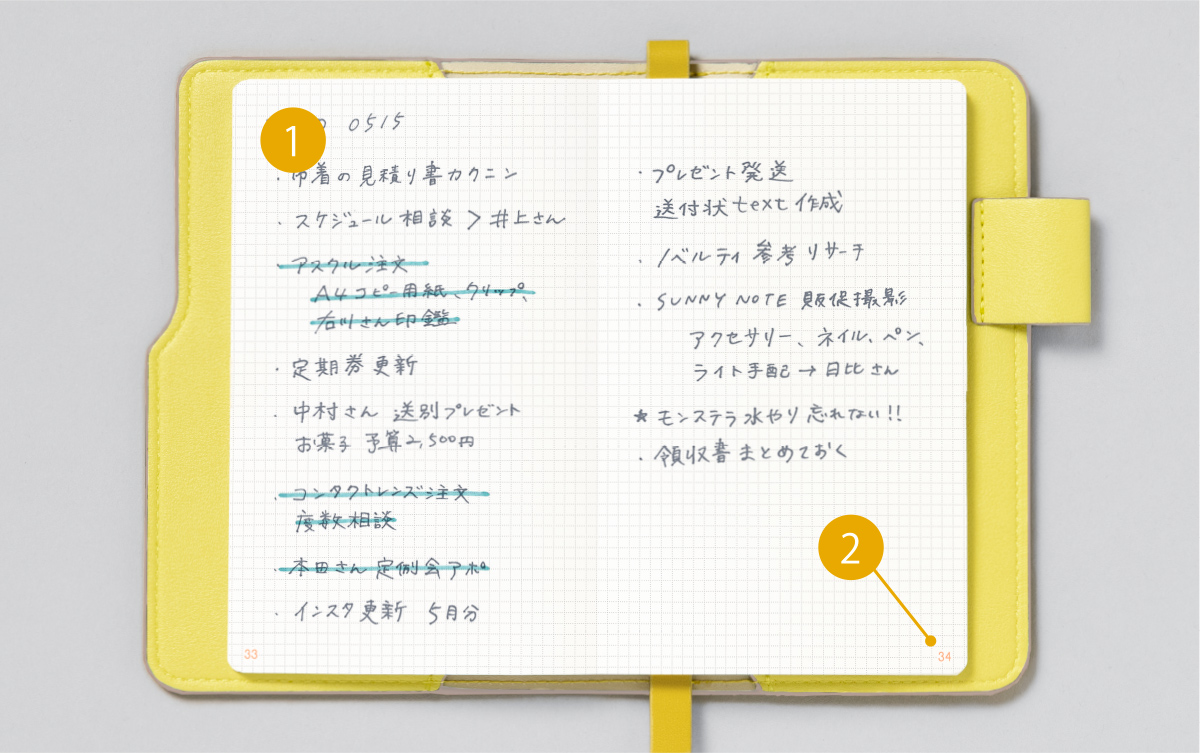 0515
・巾着の見積り書カクニン
・スケジュール相談 > 井上さん
・アスクル注文
A4コピー用紙、クリップ、
石川さん印鑑
・定期券更新
・中村さん 送別プレゼント
お菓子 予算2,500円
・コンタクトレンズ注文
度数相談
・本田さん 定例会アポ
・インスタ更新 5月分
33
・プレゼント発送
送付状text作成
・ノベルティ 参考リサーチ
・SUNNY NOTE 販促撮影
アクセサリー、ネイル、ペン、
ライト手配→日比さん
★モンステラ水やり忘れない!!
・領収書まとめておく
34
1
2